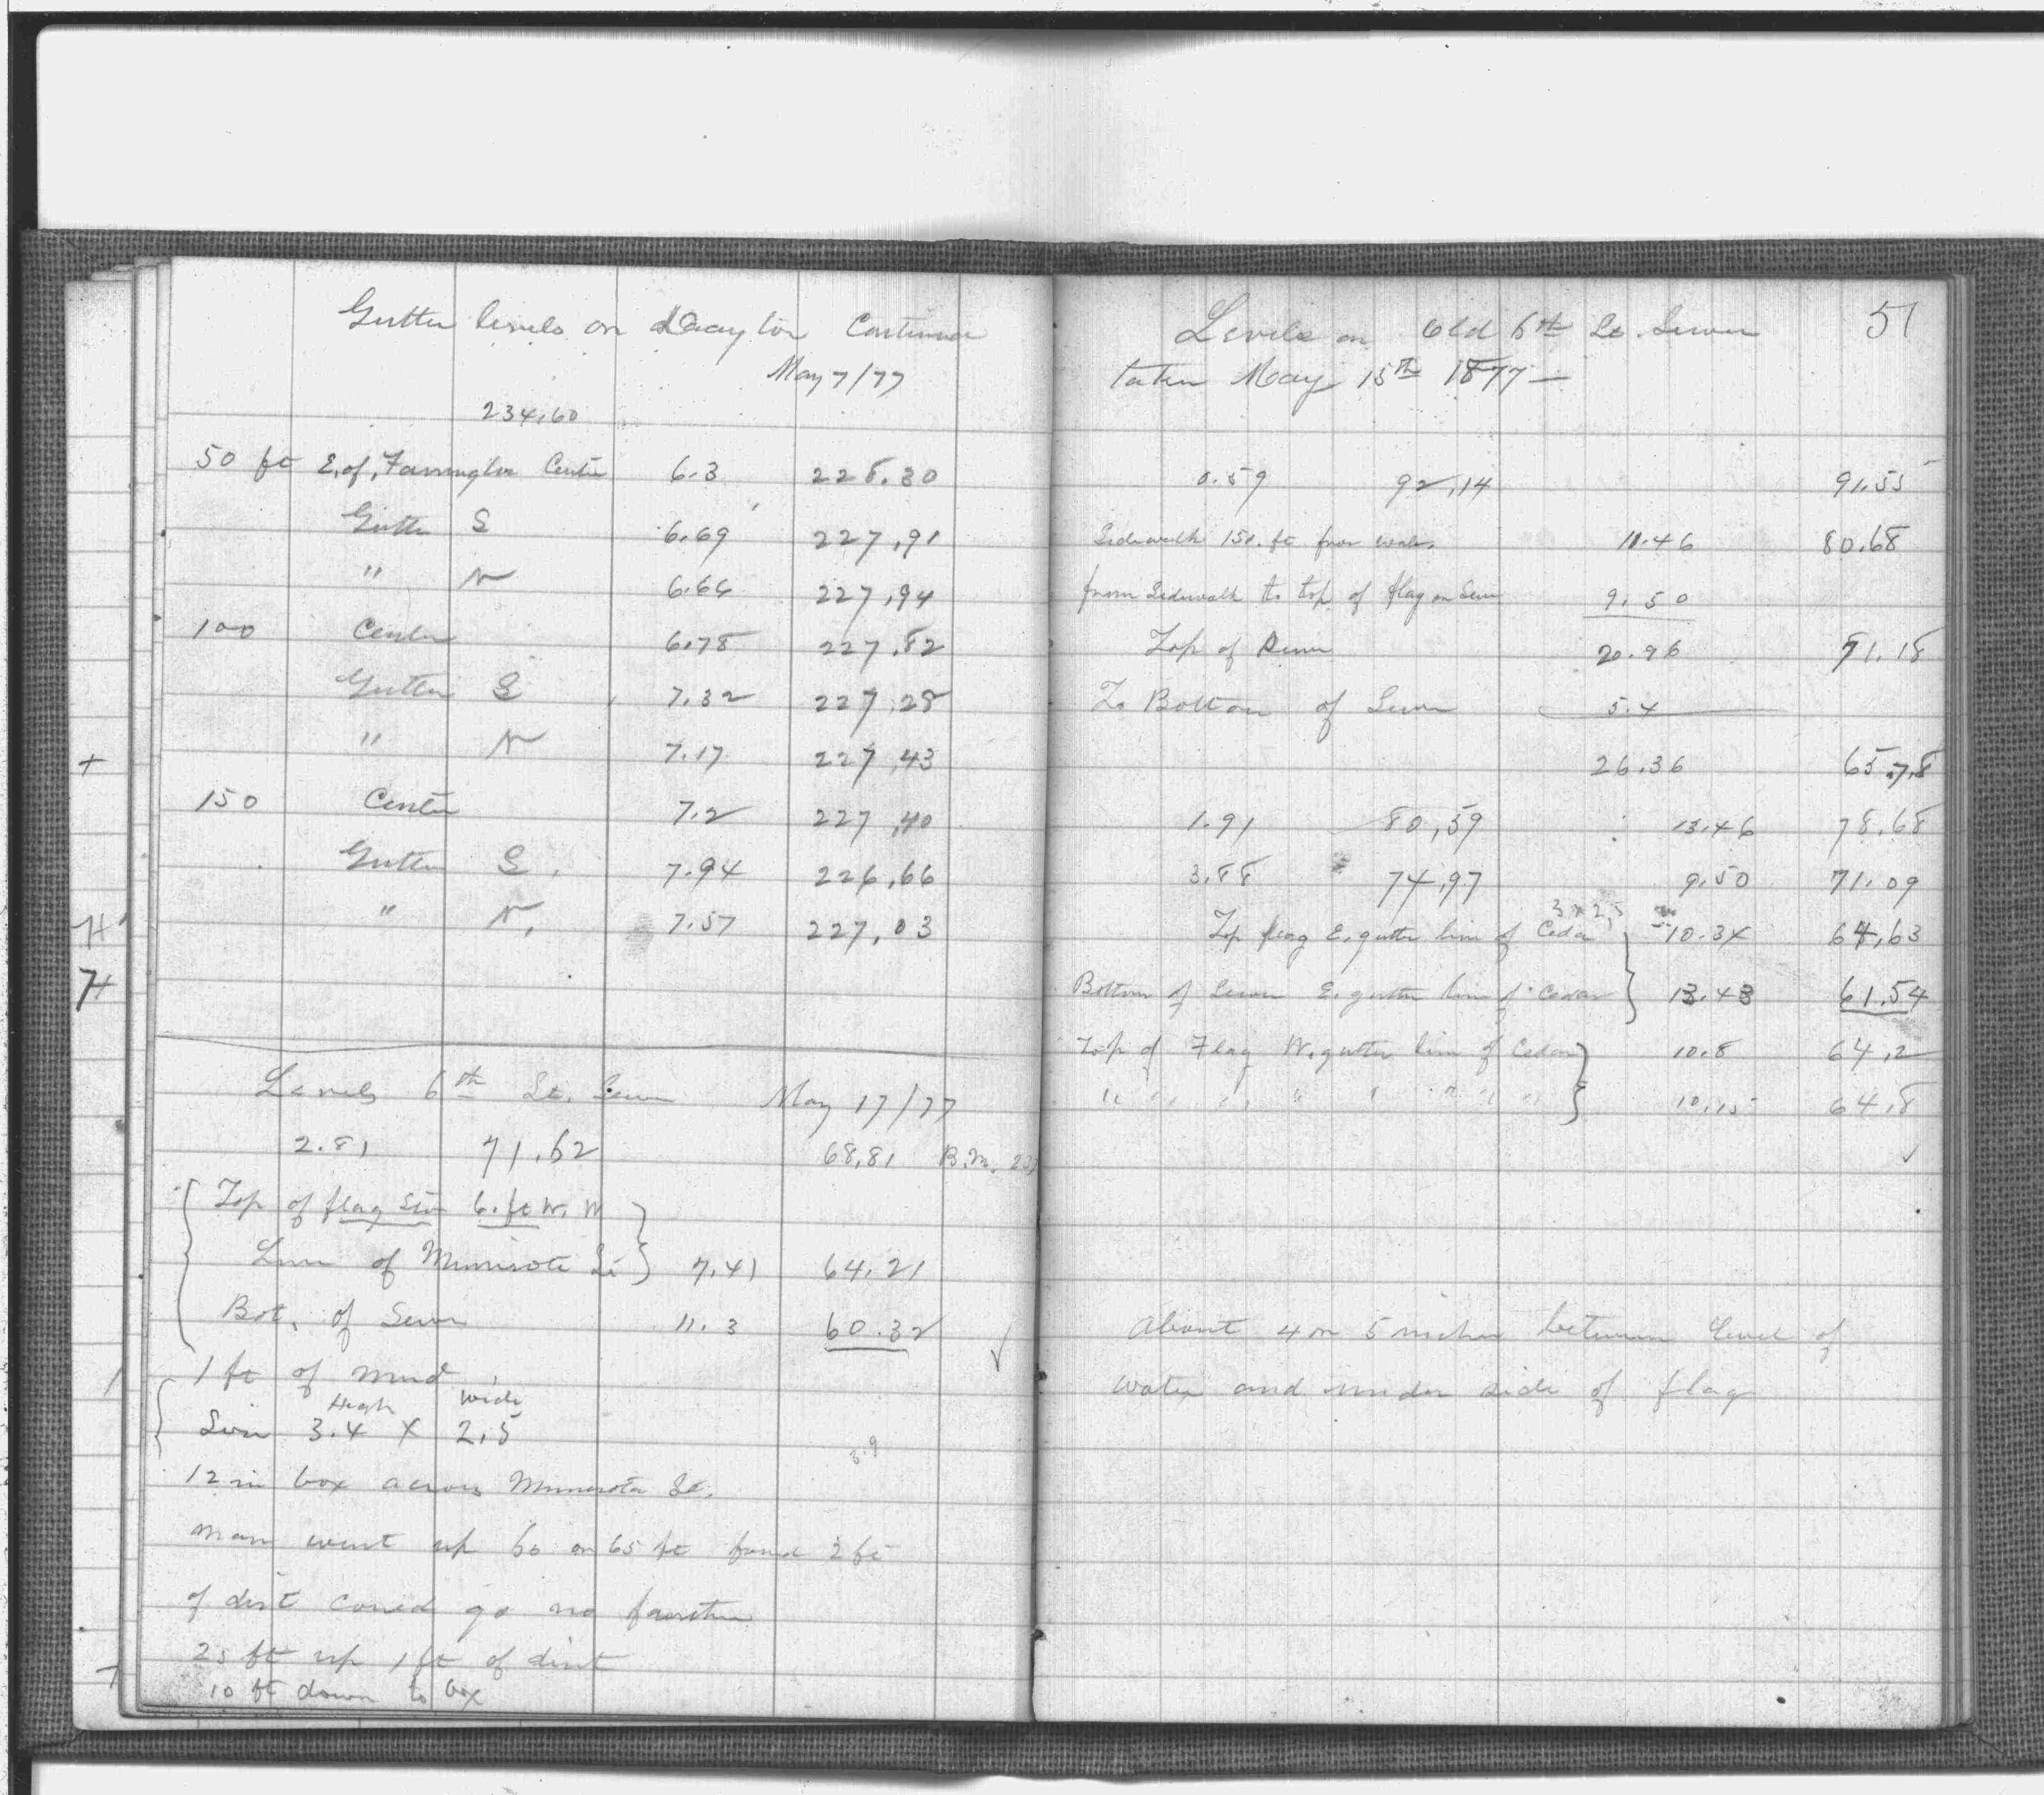 Gutter levels on Dayton Continued
May 7/77
234.60
50 ft E. of Farrington Center 6.3 228.30
Gutter S 6.69 227.91
" N 6.66 227.94
100 Center 6.78 227.82
Gutter S 7.32 227.28
" N 7.17 227.43
150 Center 7.2 227.40
Gutter S. 7.94 226.66
" N. 7.57 227.03
Levels 6th St. Sewer May 17/77
2.81 71.62 68.81 B.M.
Top of flag 6. ft W. W
Line of Minnesota St 7.41 64.21
Bot. of Sewer 11.3 60.32
1 ft of mud
High wide
3.4 x 2.5
3.9
12 in box across Minnesota St.
man went up 60 or 65 ft found 2 ft
of dirt could go no
25 ft up 1 ft of dirt
10 ft down to box
51
Levels on Old 6th St. Sewer
taken May 15th 1877 —
0.59 92.14 91.55
Sidewalk 150. ft from 11.46 80.68
from Sidewalk to top of flag on Sewer 9.50
Top of Sewer 20.96 71.18
To Bottom of Sewer 5.4
26.36 65.78
1.91 80.59 13.46 78.68
3.88 74.97 9.50 71.09
3 x 2.5
Top flag E. gutter line of Cedar 10.34 64.63
Bottom of Sewer E. gutter line of Cedar 13.43 61.54
Top of Flag W. gutter line of Cedar 10.8 64.2
" " " " " " " " 10.15 64.8
About 4 or 5 inches between level of
water and under side of flag